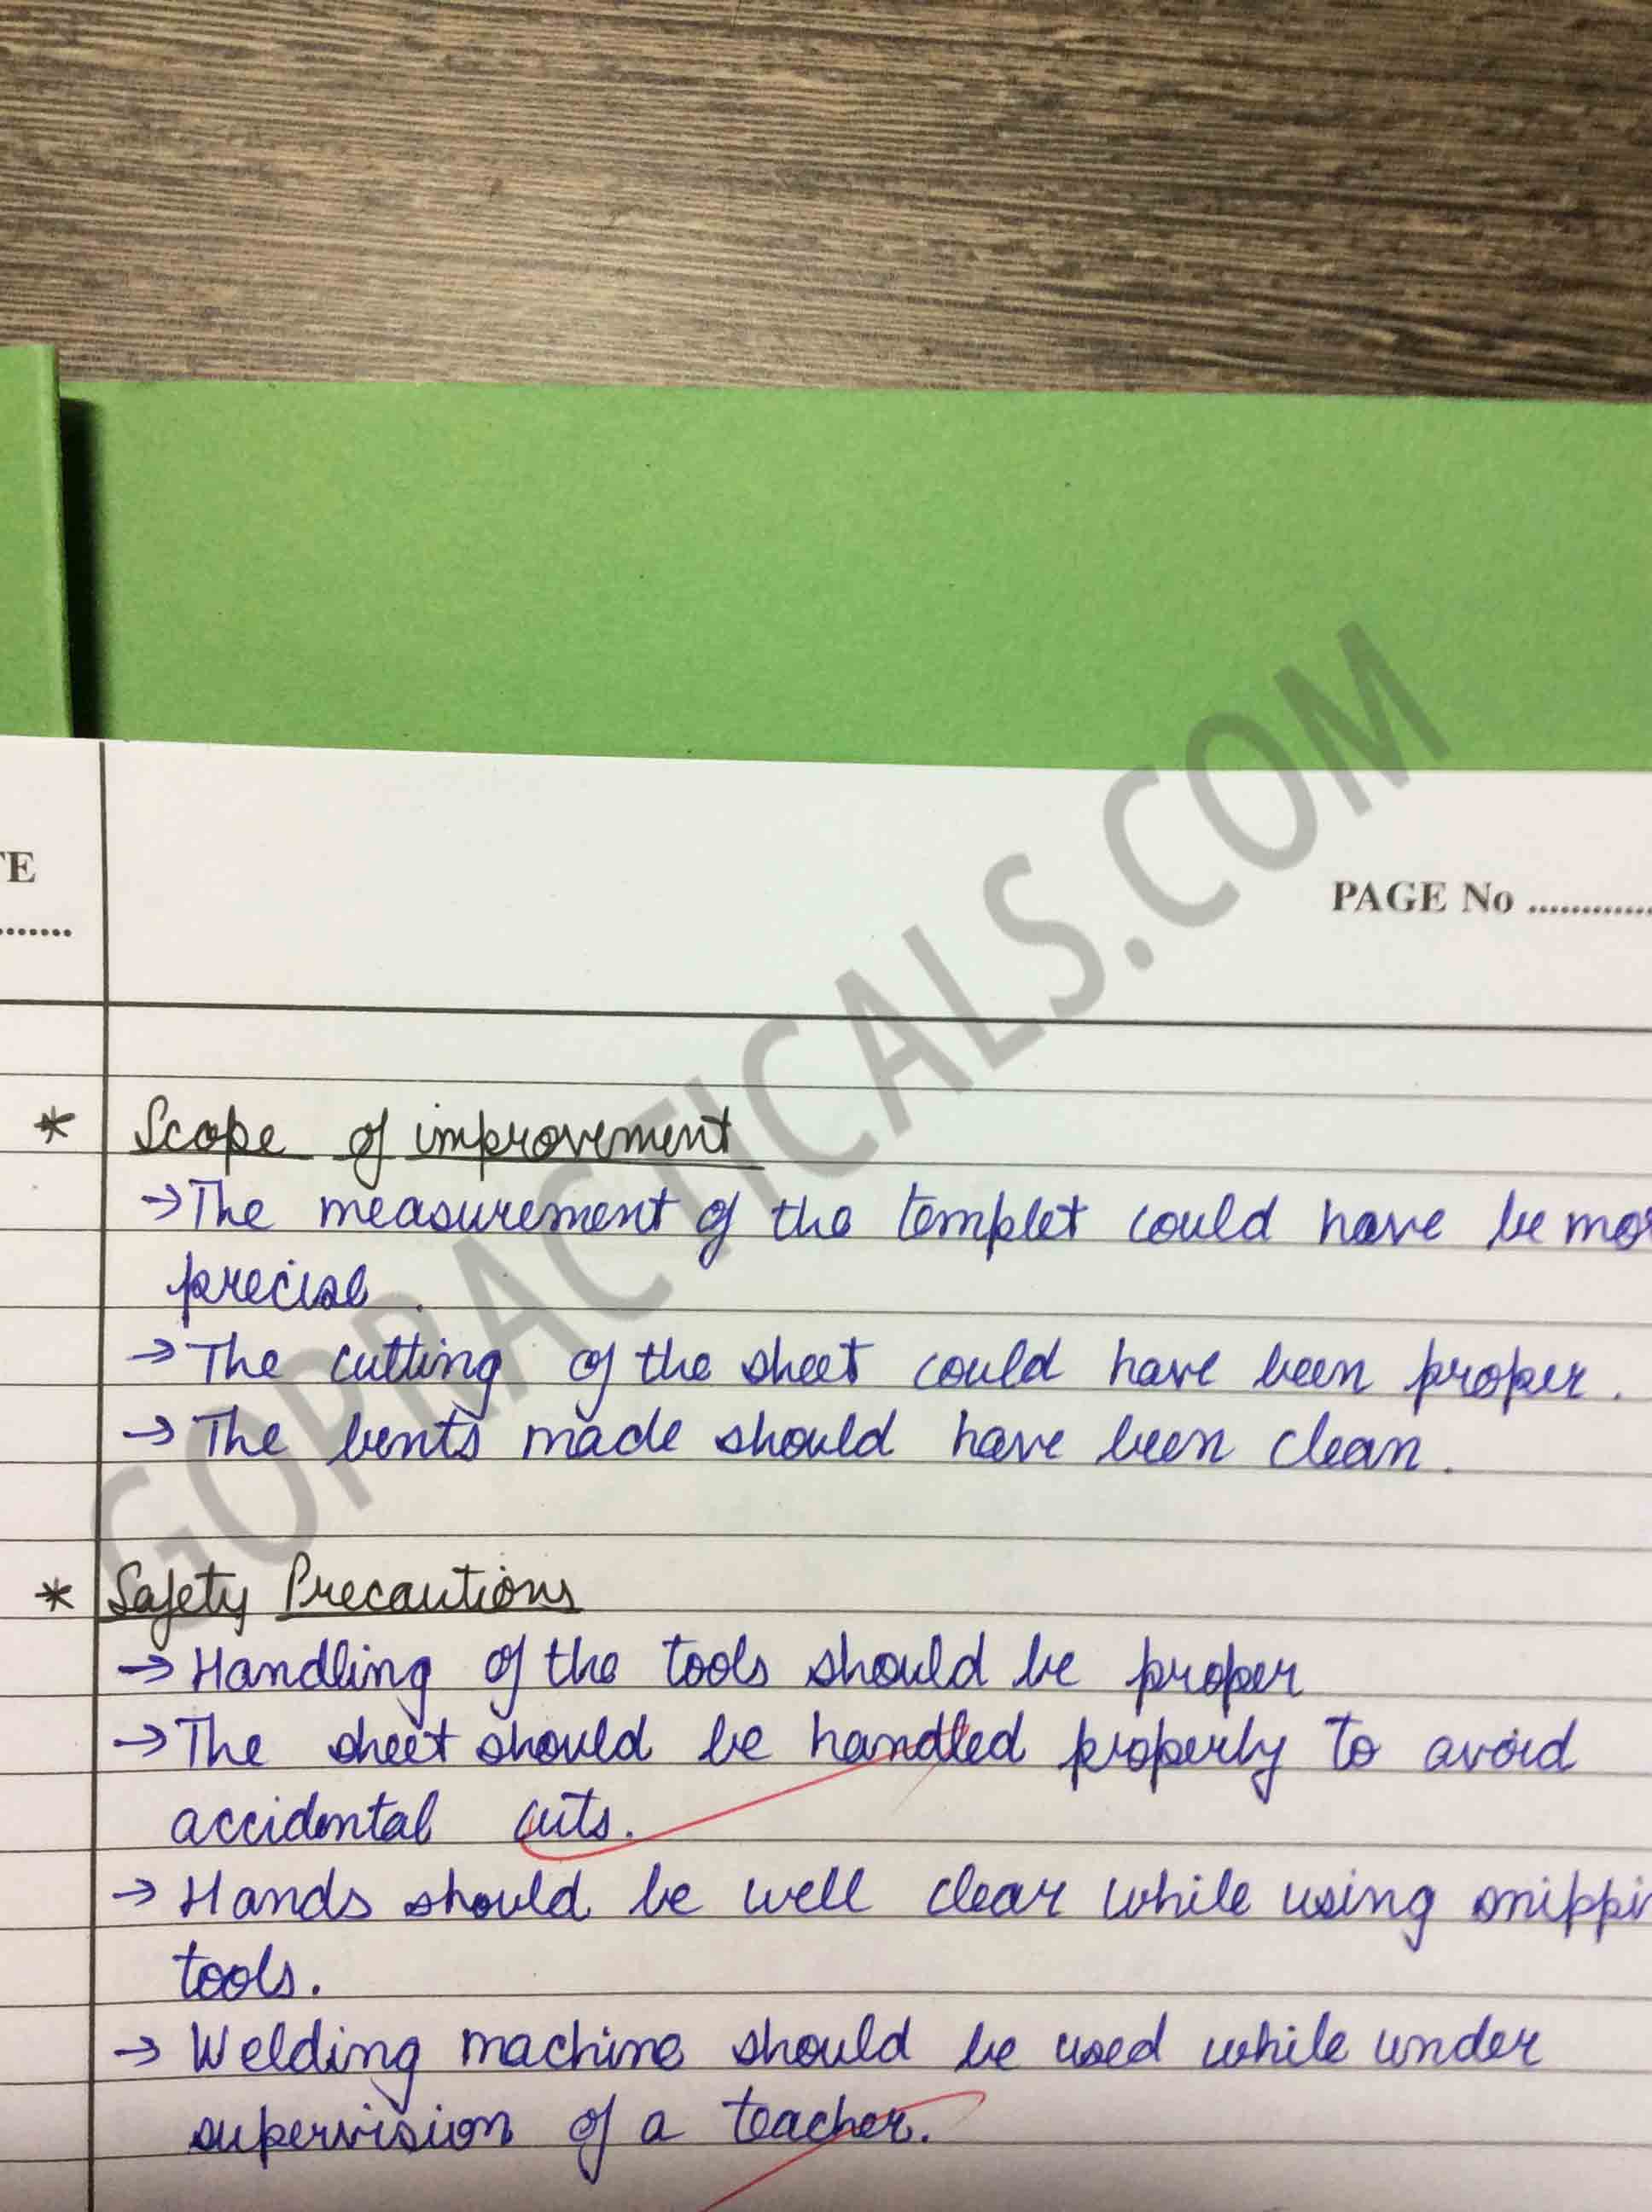 TE
........
PAGE No ............
* Scope of improvement
→ The measurement of the templet could have be mor
precise.
→ The cutting of the sheet could have been proper.
→ The bents made should have been clean.
* Safety Precautions
→ Handling of the tools should be proper
→ The sheet should be handled properly to avoid
accidental cuts.
→ Hands should be well clear while using snippi
tools.
→ Welding machine should be used while under
supervision of a teacher.
GOPRACTICALS.COM